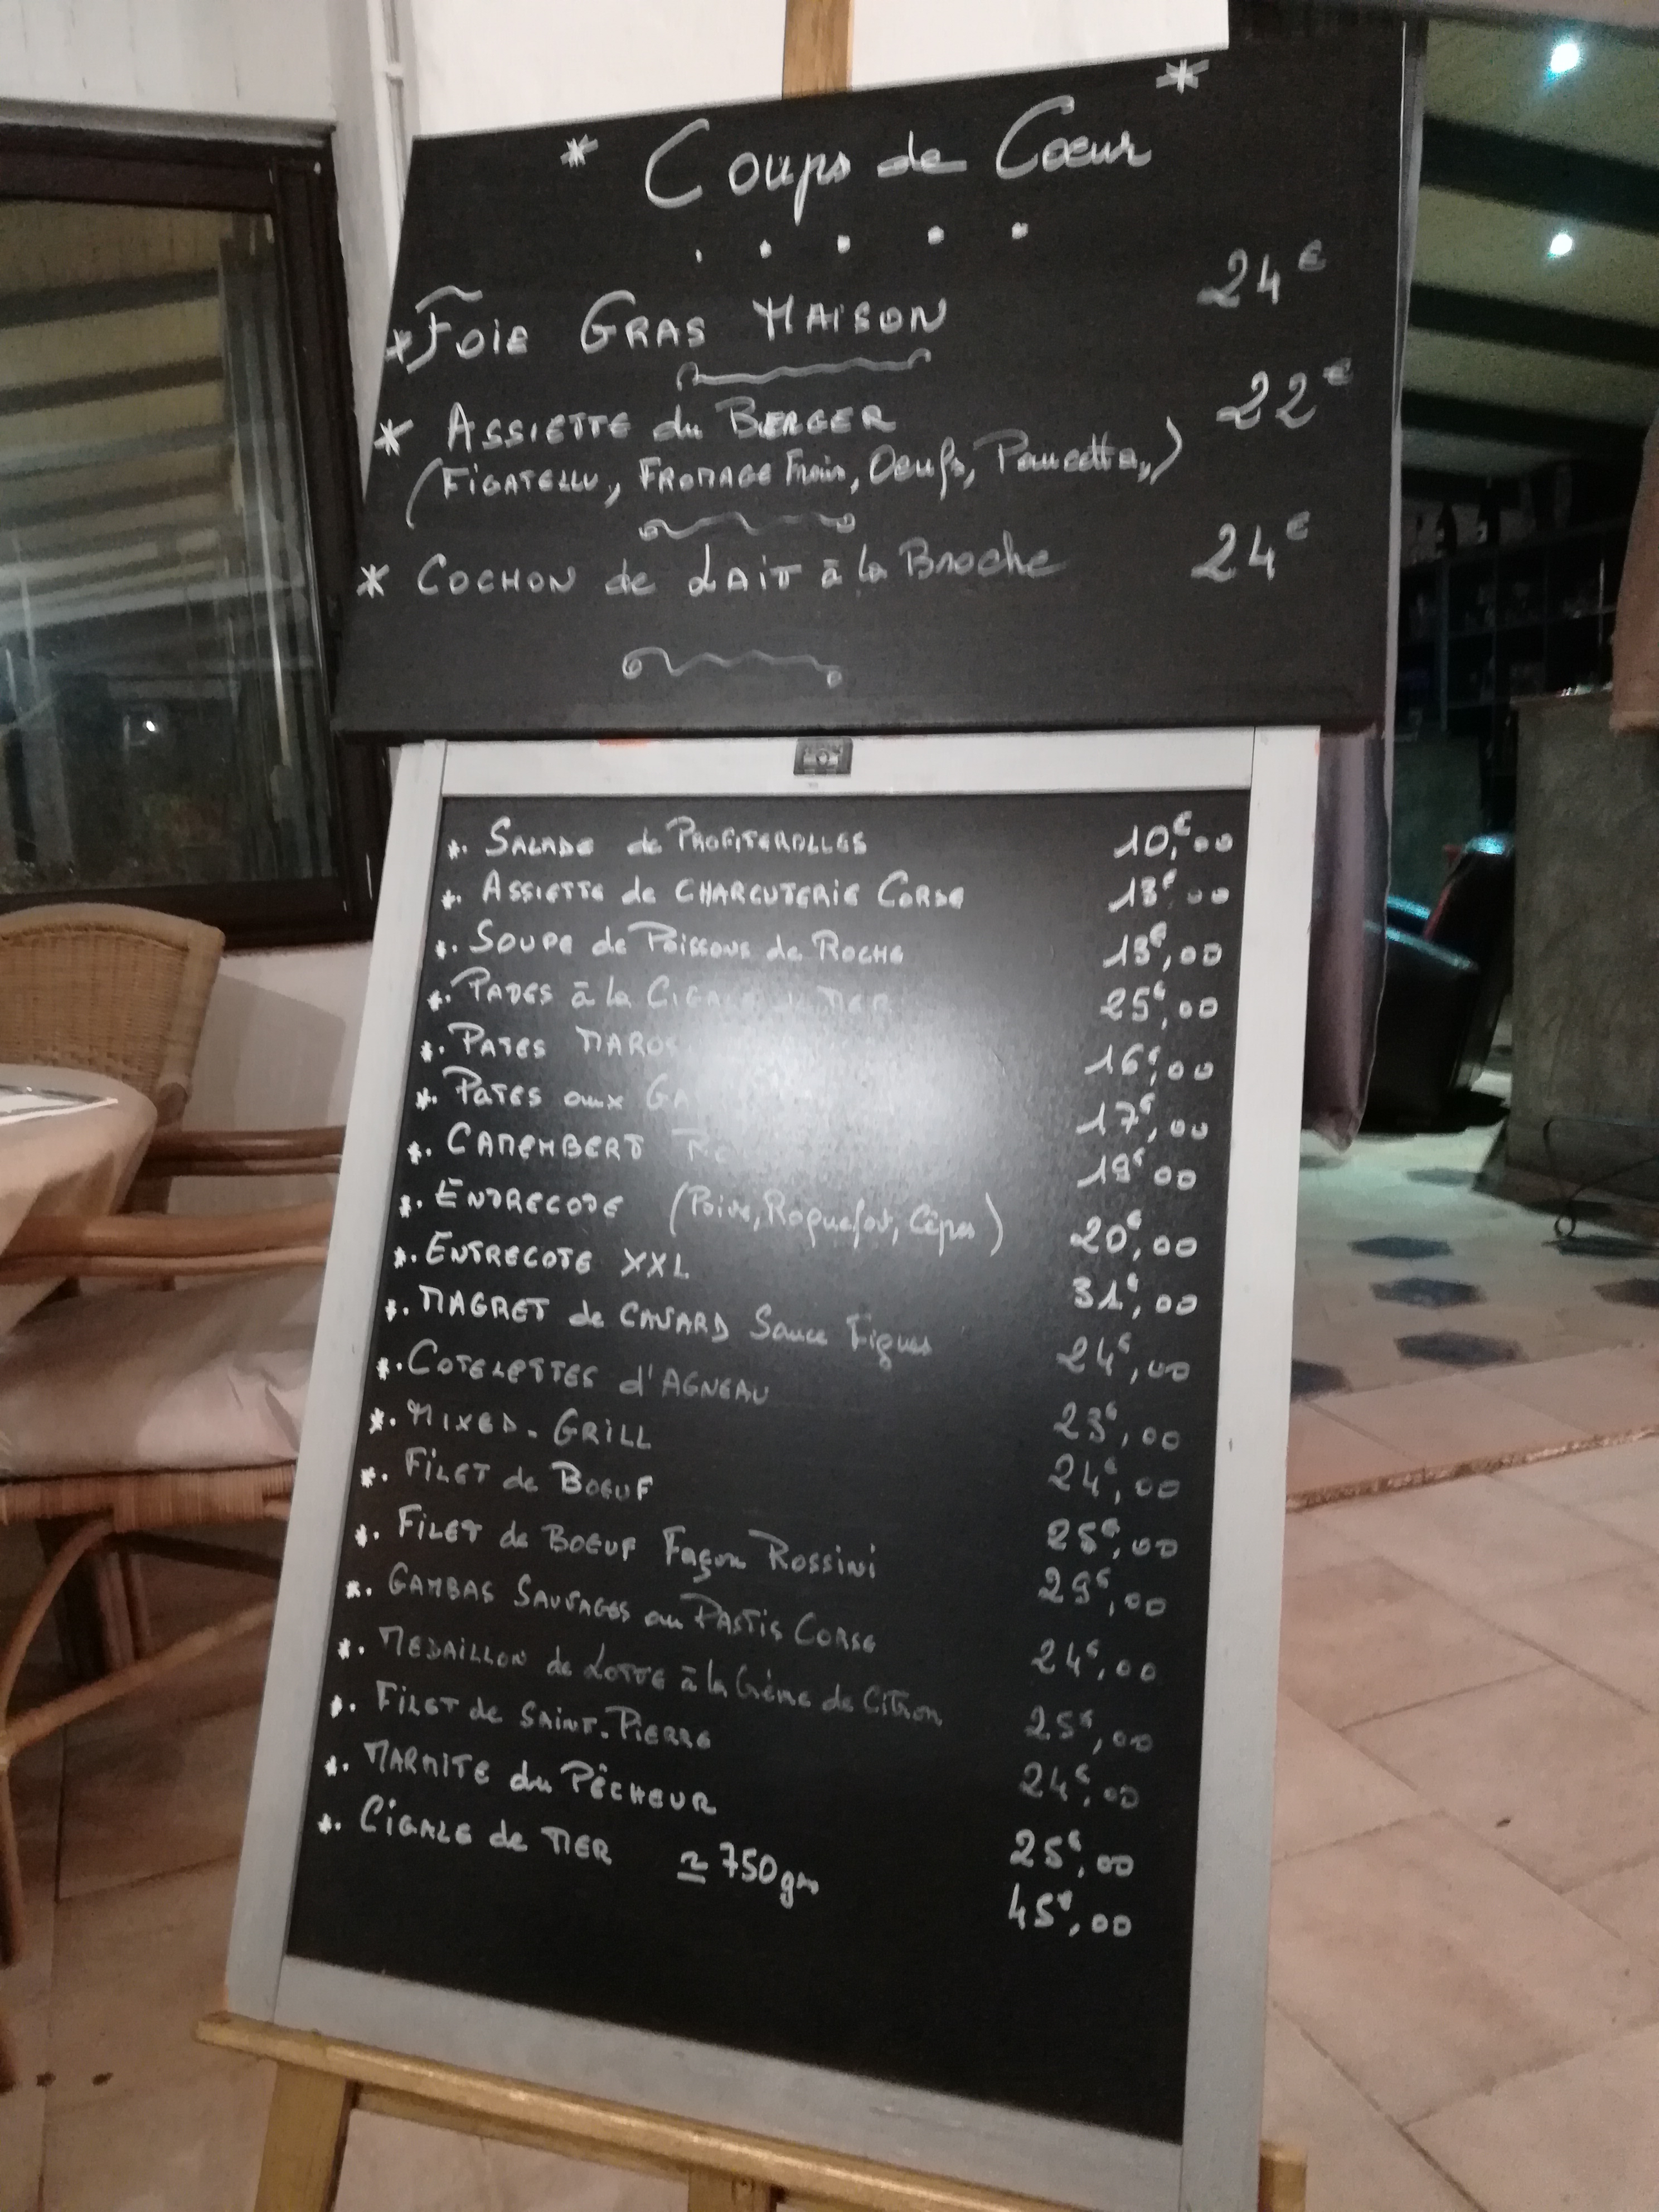 * Coups de Cœur *
* Foie GRAS MAISON 24€
* ASSIETTE du BERGER 22€
(FIGATELLU, FROMAGE Frais, Oeufs, Pancetta,,)
* COCHON de LAIT à la Broche 24€
*. SALADE de PROFITEROLLES 10€,00
*. ASSIETTE de CHARCUTERIE CORSE 13€,00
*. SOUPE de Poissons de ROCHE 13€,00
*. PATES à la CIGALE de MER 25€,00
*. PATES 16€,00
*. PATES aux 17€,00
*. CAMEMBERT 19€,00
*. ENTRECOTE (Poivre, Roquefort, Cèpes) 20€,00
*. ENTRECOTE XXL 31€,00
*. MAGRET de CANARD Sauce Figues 24€,00
*. COTELETTES d'AGNEAU 23€,00
*. MIXED-GRILL 24€,00
*. FILET de BOEUF 25€,00
*. FILET de BOEUF Façon ROSSINI 29€,00
*. GAMBAS SAUVAGES au PASTIS CORSE 24€,00
*. MEDAILLON de LOTTE à la Crème de CITRON 25€,00
*. FILET de SAINT-PIERRE 24€,00
*. MARMITE du PÊCHEUR 25€,00
*. CIGALE de MER ≃ 750grs 45€,00